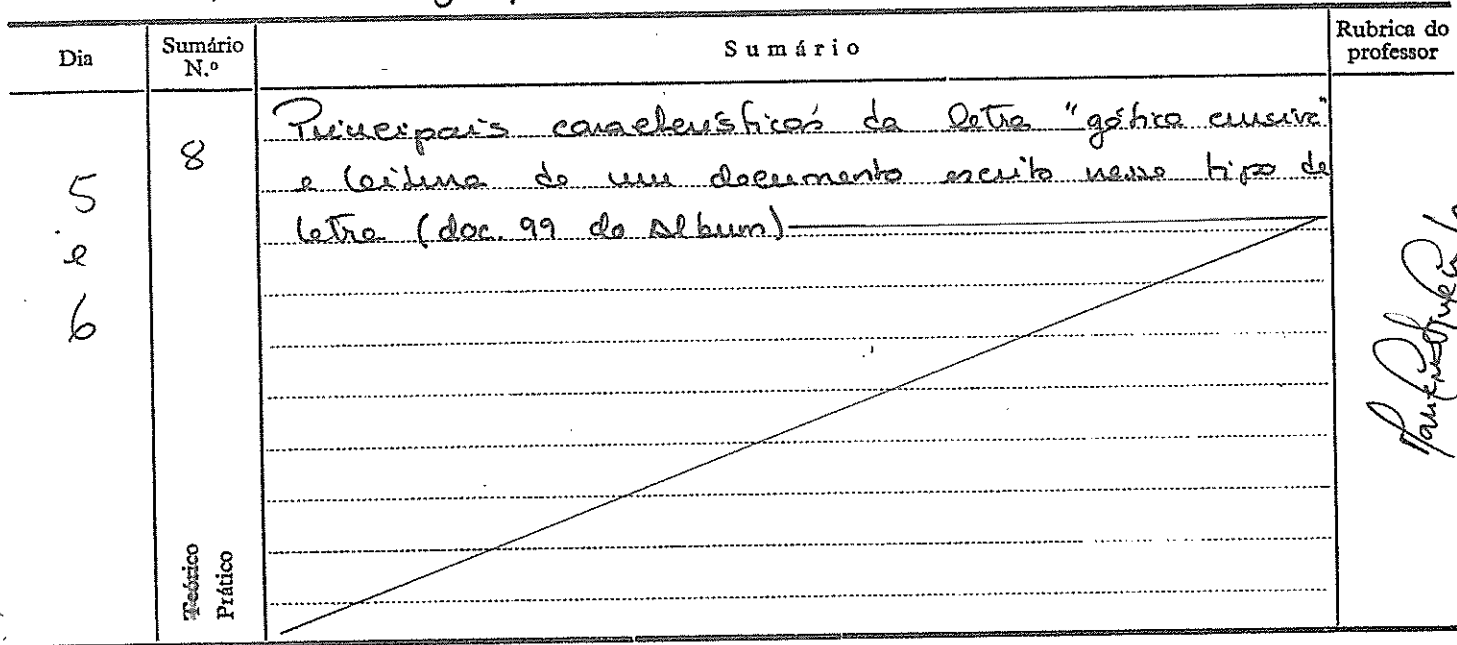 Dia
Sumário N.º
Sumário
Rubrica do professor
5 e 6
8
Principais características da letra "gótica cursiva"
e leitura de um documento escrito nesse tipo de
letra (doc. 99 do Album)
Teórico
Prático